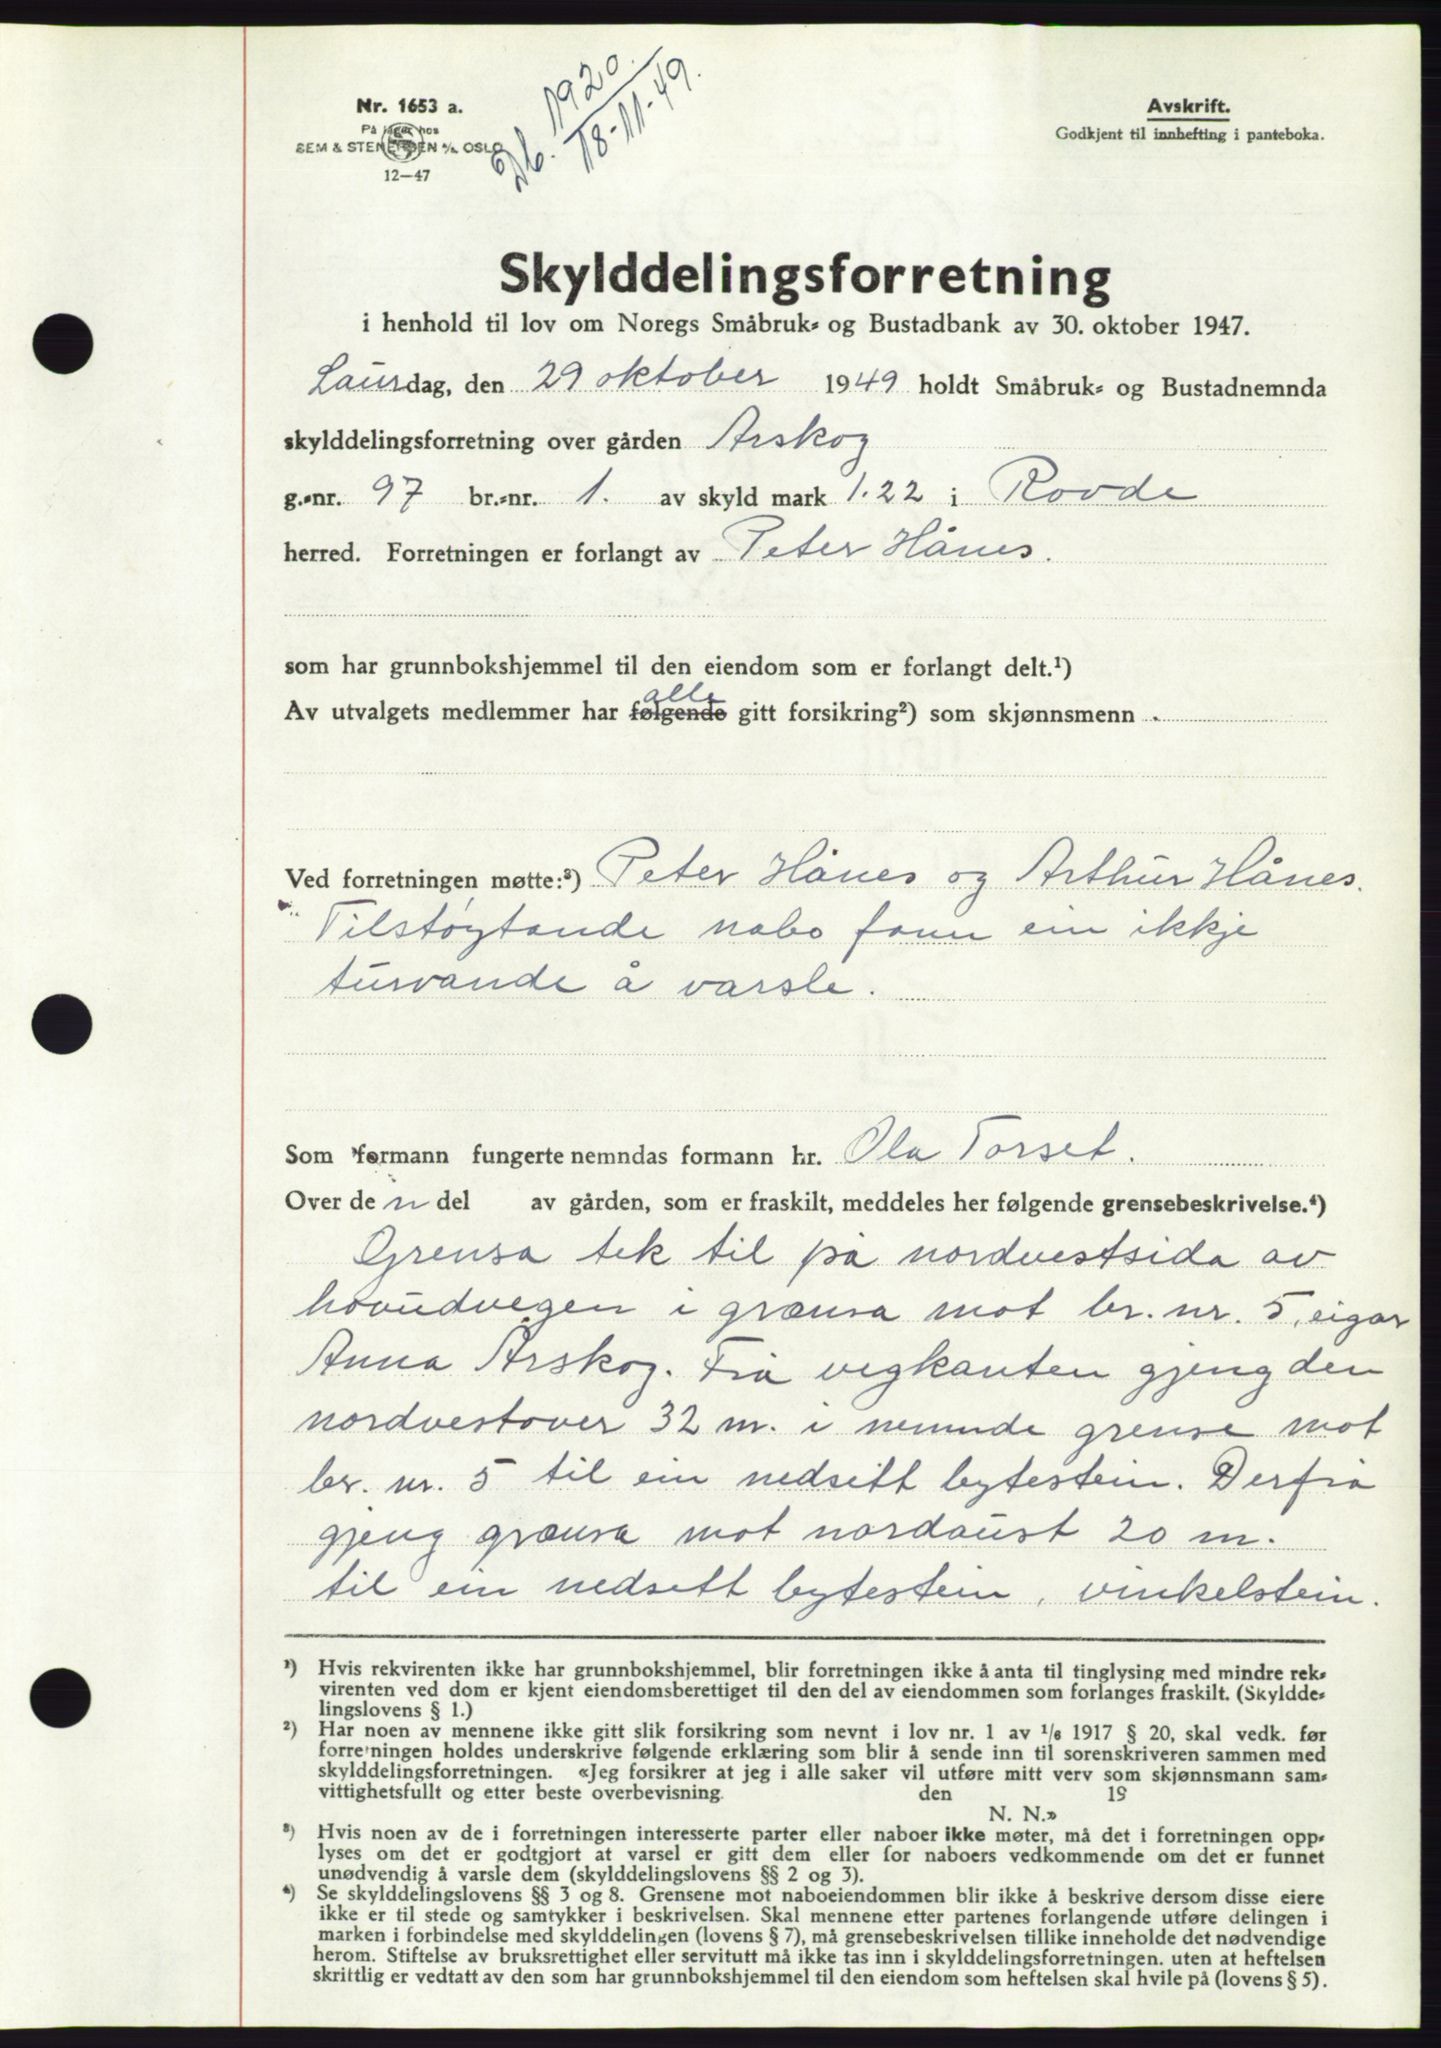 Nr. 1653 a.
På lager hos
SEM & STENERSEN A/S OSLO
12-47
Db. 1920.
18-11-49.
Avskrift.
Godkjent til innhefting i panteboka.
Skylddelingsforretning
i henhold til lov om Noregs Småbruk- og Bustadbank av 30. oktober 1947.
Laurdag, den 29 oktober 1949 holdt Småbruk- og Bustadnemnda
skylddelingsforretning over gården Arskog
g.-nr. 97 br.-nr. 1. av skyld mark 1.22 i Rovde
herred. Forretningen er forlangt av Peter Hånes.
som har grunnbokshjemmel til den eiendom som er forlangt delt.¹)
alle
Av utvalgets medlemmer har følgende gitt forsikring²) som skjønnsmenn .
Ved forretningen møtte:³) Peter Hånes og Arthur Hånes.
Tilstøytande nabo fann ein ikkje
turvande å varsle.
Som formann fungerte nemndas formann hr. Ola Torset.
Over de n del av gården, som er fraskilt, meddeles her følgende grensebeskrivelse.⁴)
Grensa tek til på nordvestsida av
hovudvegen i grænsa mot br. nr. 5, eigar
Anna Årskog. Frå vegkanten gjeng den
nordvestover 32 m. i nemnde grense mot
br. nr. 5 til ein nedsett bytestein. Derfrå
gjeng grænsa mot nordaust 20 m.
til ein nedsett bytestein, vinkelstein.
¹) Hvis rekvirenten ikke har grunnbokshjemmel, blir forretningen ikke å anta til tinglysing med mindre rek-
virenten ved dom er kjent eiendomsberettiget til den del av eiendommen som forlanges fraskilt. (Skyldde-
lingslovens § 1.)
²) Har noen av mennene ikke gitt slik forsikring som nevnt i lov nr. 1 av 1/6 1917 § 20, skal vedk. før
forretningen holdes underskrive følgende erklæring som blir å sende inn til sorenskriveren sammen med
skylddelingsforretningen. «Jeg forsikrer at jeg i alle saker vil utføre mitt verv som skjønnsmann sam-
vittighetsfullt og etter beste overbevisning. den 19
N. N.»
³) Hvis noen av de i forretningen interesserte parter eller naboer ikke møter, må det i forretningen opp-
lyses om det er godtgjort at varsel er gitt dem eller for naboers vedkommende om det er funnet
unødvendig å varsle dem (skylddelingslovens §§ 2 og 3).
⁴) Se skylddelingslovens §§ 3 og 8. Grensene mot naboeiendommen blir ikke å beskrive dersom disse eiere
ikke er til stede og samtykker i beskrivelsen. Skal mennene etter partenes forlangende utføre delingen i
marken i forbindelse med skylddelingen (lovens § 7), må grensebeskrivelsen tillike inneholde det nødvendige
herom. Stiftelse av bruksrettighet eller servitutt må ikke tas inn i skylddelingsforretningen, uten at heftelsen
skrittlig er vedtatt av den som har grunnbokshjemmel til den eiendom som heftelsen skal hvile på (lovens § 5).